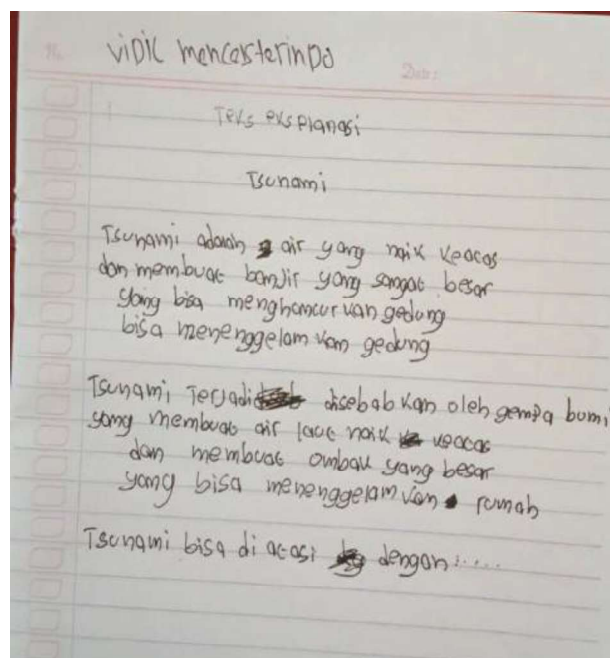 No.
Vidic mancesterindo
Date:
Teks eksplanasi
Tsunami
Tsunami adalah air yang naik keatas
dan membuat banjir yang sangat besar
yang bisa menghancurkan gedung
bisa menenggelamkan gedung
Tsunami Terjadi disebabkan oleh gempa bumi
yang membuat air laut naik keatas
dan membuat ombak yang besar
yang bisa menenggelamkan rumah
Tsunami bisa di atasi dengan:....